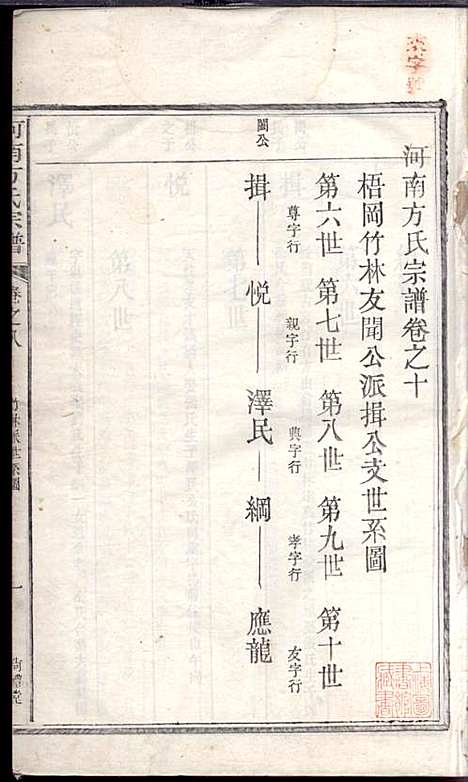 河南方氏宗譜卷之十
梧岡竹林友聞公派揖公支世系圖
第六世 第七世 第八世 第九世 第十世
尊字行 親字行 典字行 孝字行 友字行
聞公
揖 悅 澤民 綱 應龍
河南方氏宗譜
卷之八
竹林派世系圖
一